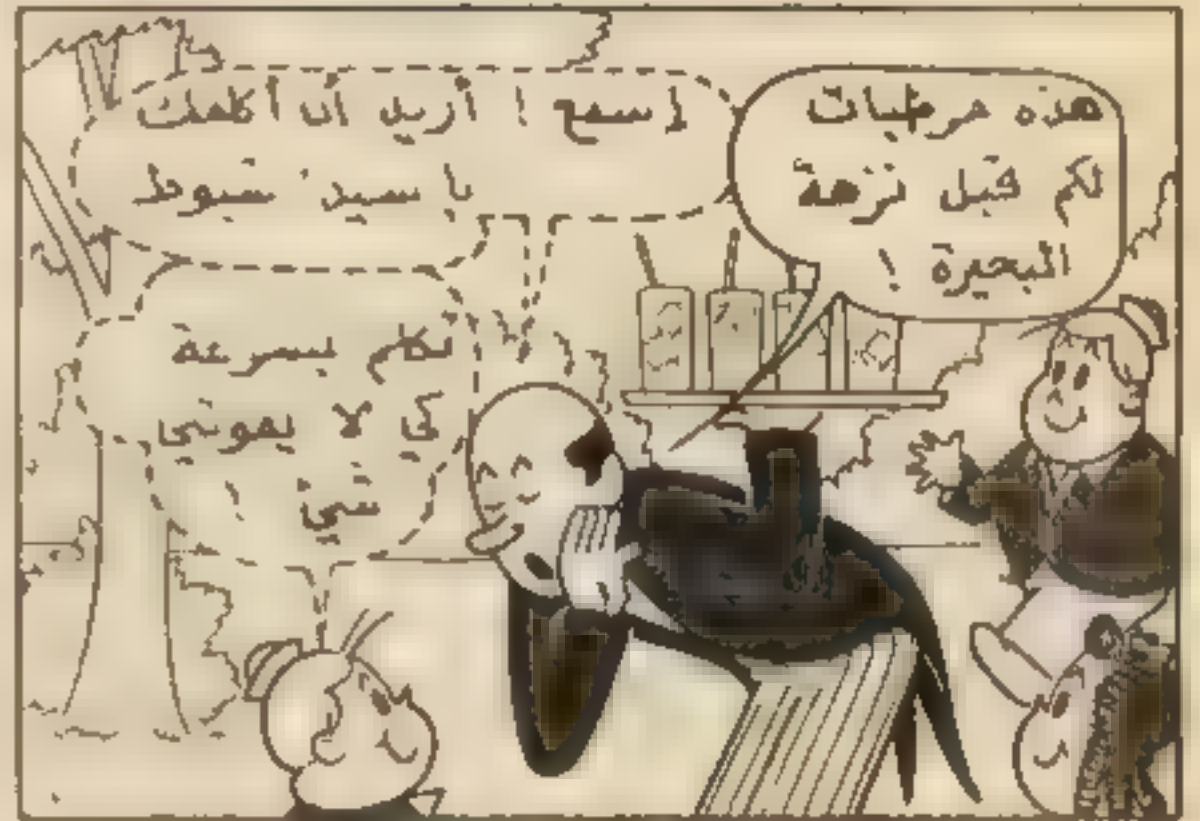 هذه مرطبات
لكم قبل نزهة
البحيرة !
إسمع ! أريد أن أكلمك
يا سيد شبوط
تكلم بسرعة
كي لا يفوتني
شيئ !